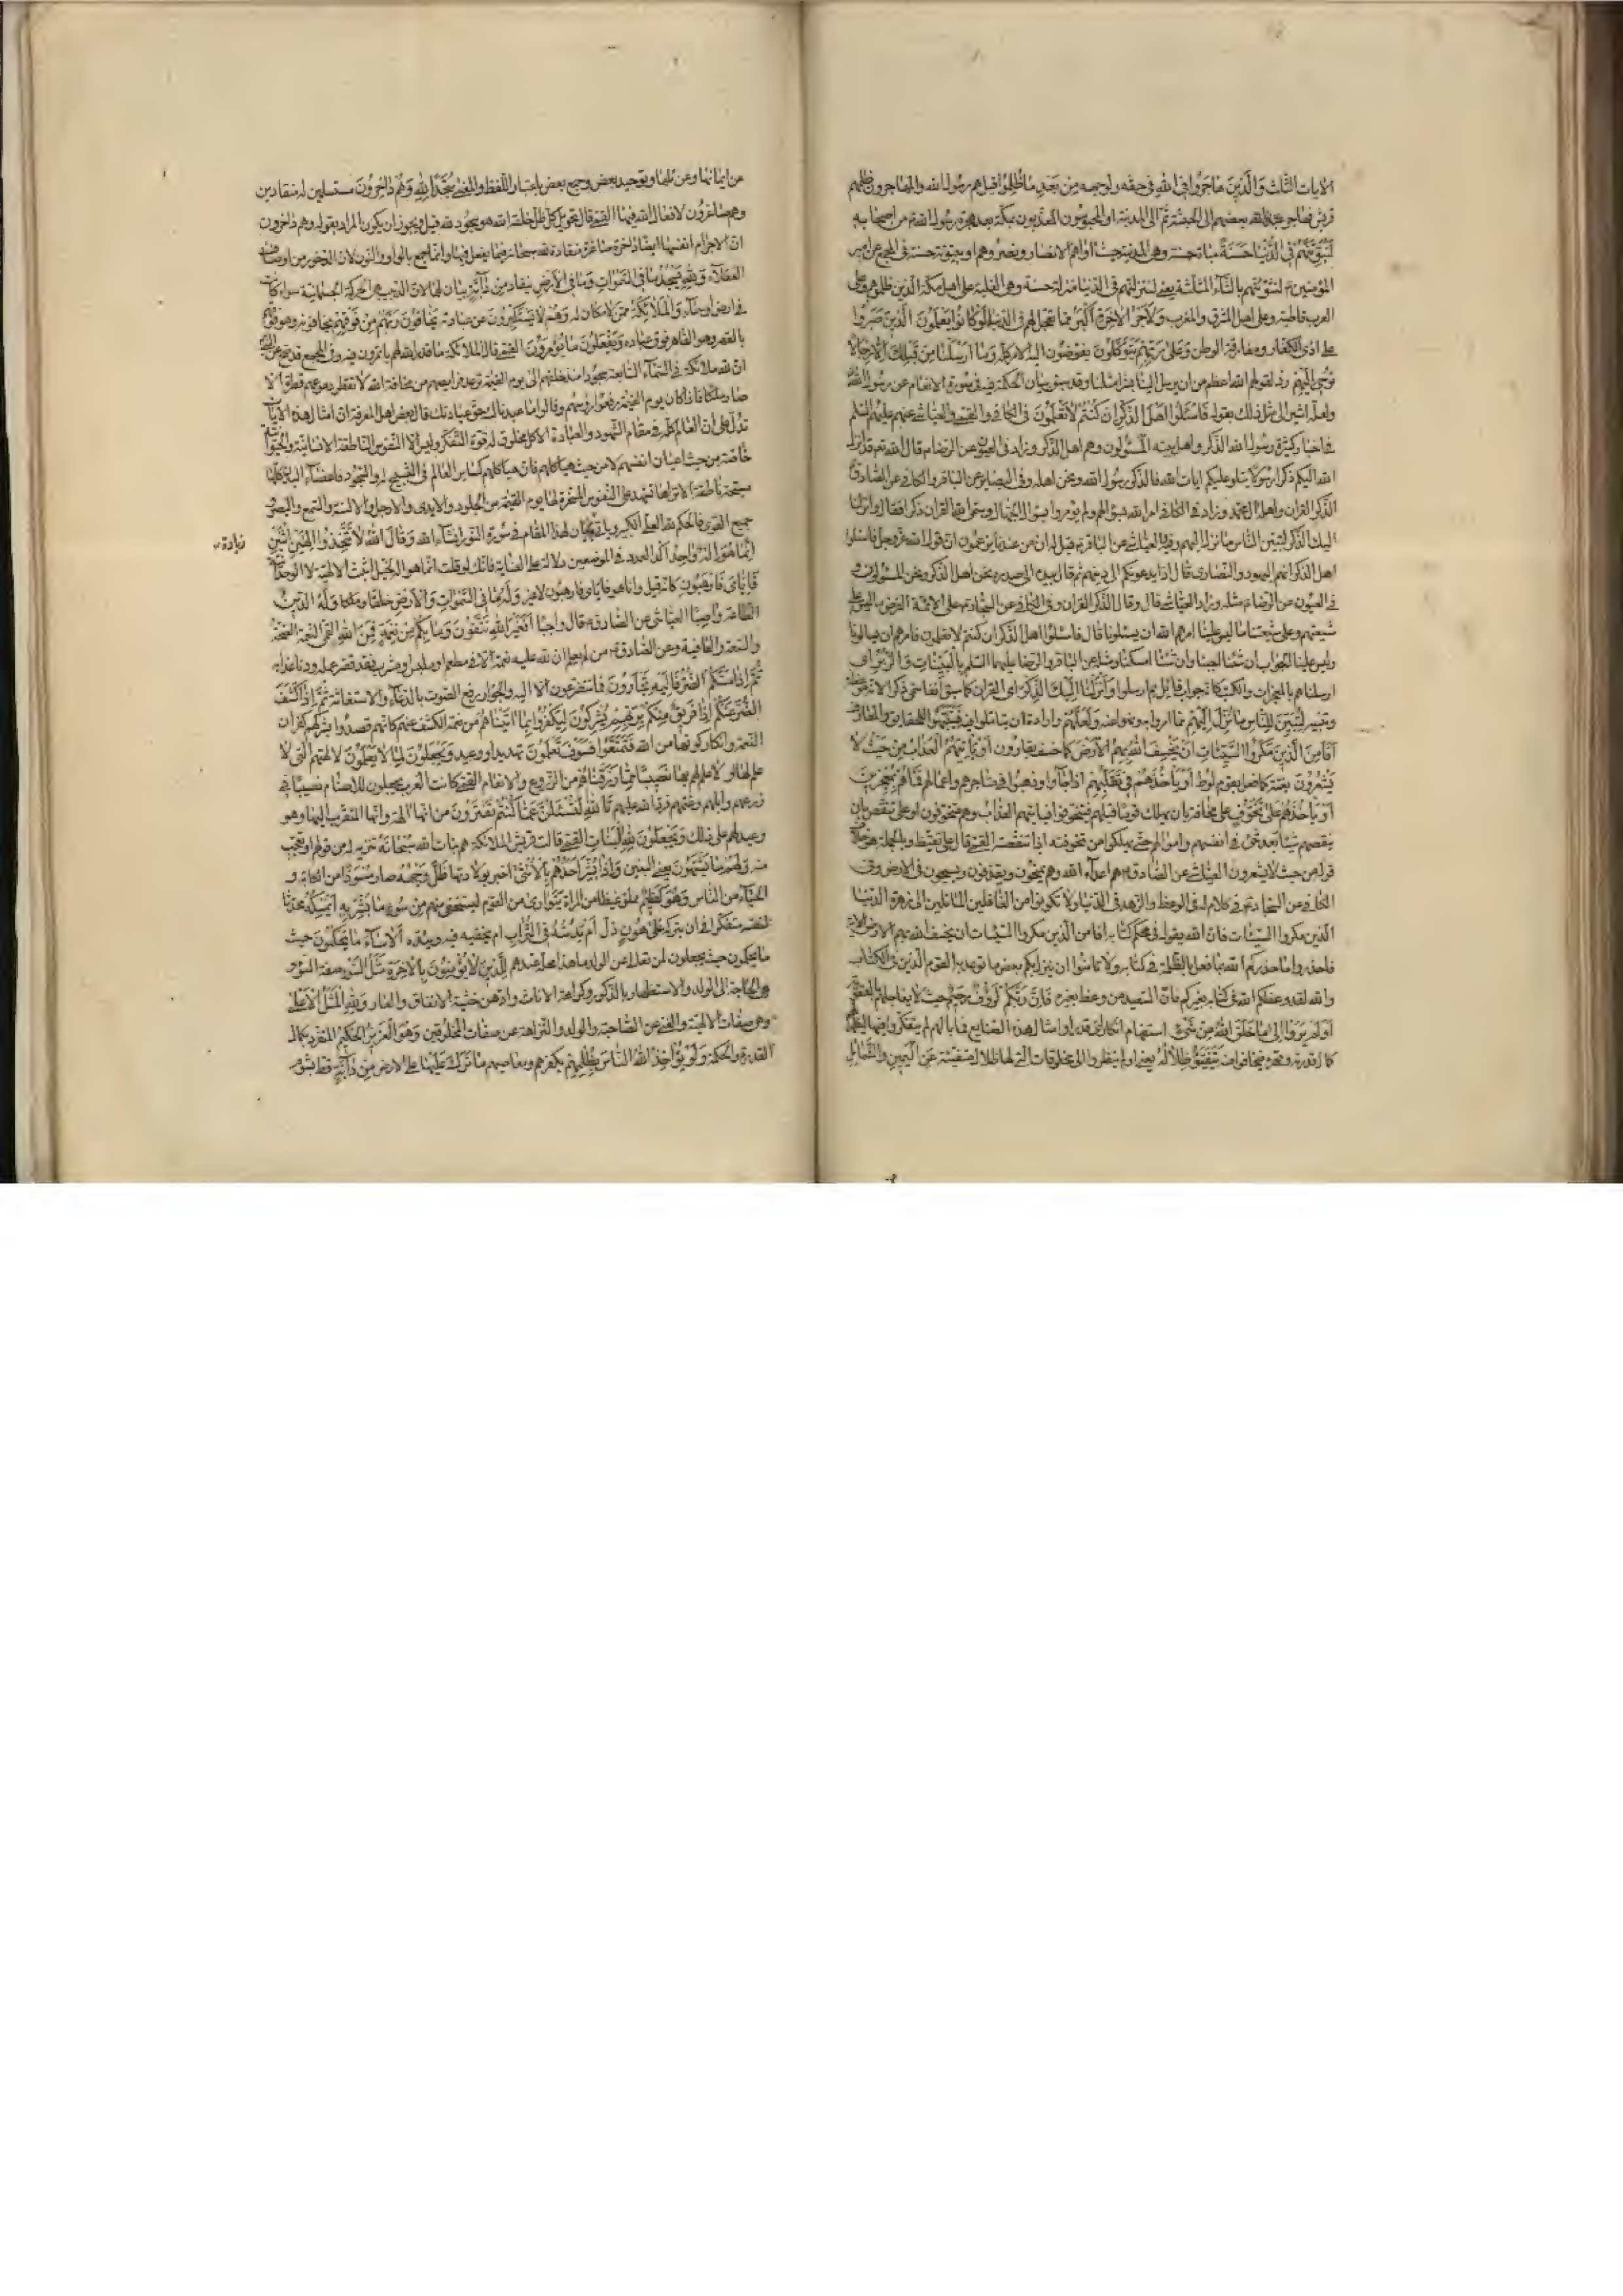 الايات الثلث وَالَّذِينَ هَاجَرُوا فِي اللَّهِ في حقه ولوجهه مِنْ بَعْدِ مَا ظُلِمُوا قيل هم رسول الله والمهاجرون ظلمهم
قريش فهاجر بعضهم الى الحبشة ثم الى المدينة او المحبوسون المعذبون بمكة بعد هجرة رسول الله من اصحابه
لَنُبَوِّئَنَّهُمْ فِي الدُّنْيَا حَسَنَةً مباءة حسنة وهي المدينة حيث اواهم الانصار ونصروهم او تبوئة حسنة في المجمع عن امير
المؤمنين لنثوينهم بالثاء المثلثة يعني لننزلنهم في الدنيا منزلة حسنة وهي الغلبة على اهل مكة الذين ظلموهم وعلى
العرب قاطبة وعلى اهل المشرق والمغرب وَلَأَجْرُ الْآخِرَةِ أَكْبَرُ مما تعجل لهم في الدنيا لَوْ كَانُوا يَعْلَمُونَ الَّذِينَ صَبَرُوا
على اذى الكفار ومفارقة الوطن وَعَلَى رَبِّهِمْ يَتَوَكَّلُونَ يفوضون اليه الامر كله وَمَا أَرْسَلْنَا مِنْ قَبْلِكَ إِلَّا رِجَالًا
نُوحِي إِلَيْهِمْ رد لقولهم الله اعظم من ان يرسل الينا بشرا مثلنا وقد سبق بيان الحكمة فيه في سورة الانعام عن رسول الله
ولعله اشير الى مثل ذلك بقوله فَاسْئَلُوا أَهْلَ الذِّكْرِ إِنْ كُنْتُمْ لَا تَعْلَمُونَ في الكافي والقمي والعياشي عنهم عليهم السلم
في اخبار كثيرة رسول الله الذكر واهل بيته المسئولون وهم اهل الذكر وزاد في العيون عن الرضا قال الله تعالى قد انزل
الله اليكم ذكرا رسولا يتلو عليكم ايات الله فالذكر رسول الله ونحن اهله وفي البصاير عن الباقر والكافي عن الصادق
الذكر القران واهله ال محمد وزاد في الكافي امر الله بسؤالهم ولم يؤمروا بسؤال الجهال وسمى الله القران ذكرا فقال وانزلنا
اليك الذكر لتبين للناس ما نزل اليهم وفيه والعياشي عن الباقر قيل له ان من عندنا يزعمون ان قول الله عز وجل فاسئلوا
اهل الذكر انهم اليهود والنصارى قال اذا يدعونكم الى دينهم ثم قال بيده الى صدره نحن اهل الذكر ونحن المسئولون و
في العيون عن الرضا مثله وزاد العياشي قال وقال الذكر القران وفي الكافي عن السجاد على الائمة من الفرض ما ليس على
شيعتهم وعلى شيعتنا ما ليس علينا امرهم الله ان يسئلونا قال فاسئلوا اهل الذكر ان كنتم لا تعلمون فامرهم ان يسألونا
وليس علينا الجواب ان شئنا اجبنا وان شئنا امسكنا ومثله عن الباقر والرضا عليهما السلم بِالْبَيِّنَاتِ وَالزُّبُرِ اى
ارسلناهم بالمعجزات والكتب كانه جواب قائل بم ارسلوا وَأَنْزَلْنَا إِلَيْكَ الذِّكْرَ اى القران كما سبق انفا سمى ذكرا لانه موعظة
وتنبيه لِتُبَيِّنَ لِلنَّاسِ مَا نُزِّلَ إِلَيْهِمْ مما امروا به ونهوا عنه وَلَعَلَّهُمْ وارادة ان يتاملوا فيه فيتنبهوا للحقايق والمعارف
أَفَأَمِنَ الَّذِينَ مَكَرُوا السَّيِّئَاتِ أَنْ يَخْسِفَ اللَّهُ بِهِمُ الْأَرْضَ كما خسف بقارون أَوْ يَأْتِيَهُمُ الْعَذَابُ مِنْ حَيْثُ لَا
يَشْعُرُونَ بغتة كما فعل بقوم لوط أَوْ يَأْخُذَهُمْ فِي تَقَلُّبِهِمْ اذا جاؤا وذهبوا في متاجرهم واعمالهم فَمَا هُمْ بِمُعْجِزِينَ
أَوْ يَأْخُذَهُمْ عَلَى تَخَوُّفٍ على مخافة بان يهلك قوما قبلهم فيتخوفوا فياتيهم العذاب وهم متخوفون او على تنقص بان
ينقصهم شيئا بعد شئ في انفسهم واموالهم حتى يهلكوا من تخوفته اذا تنقصته القمي قال على تيقظ وبالجملة هو خلاف
قوله من حيث لا يشعرون العياشي عن الصادق هم اعداء الله وهم يمسخون ويقذفون ويسيحون في الارض وفي
الكافي عن السجاد في كلام له في الوعظ والزهد في الدنيا ولا تكونوا من الغافلين المائلين الى زهرة الدنيا
الذين مكروا السيئات فان الله يقول في محكم كتابه افامن الذين مكروا السيئات ان يخسف الله بهم الارض الاية
فاحذروا ما حذركم الله بما فعل بالظلمة في كتابه ولا تامنوا ان ينزل بكم بعض ما توعد به القوم الظالمين في الكتاب
والله لقد وعظكم الله في كتابه بغيركم فان السعيد من وعظ بغيره فَإِنَّ رَبَّكُمْ لَرَؤُوفٌ رَحِيمٌ حيث لا يعاجلهم بالعقوبة
أَوَلَمْ يَرَوْا إِلَى مَا خَلَقَ اللَّهُ مِنْ شَيْءٍ استفهام انكار اى قد راوا امثال هذه الصنايع فما بالهم لم يتفكروا فيها ليظهر لهم
كمال قدرته وقهره فيخافوا منه يَتَفَيَّؤُ ظِلَالُهُ يعنى اولم ينظروا الى المخلوقات التي لها ظلال متفيئة عَنِ الْيَمِينِ وَالشَّمَائِلِ
عن ايمانها وعن شمائلها وتوحيد بعض وجمع بعض باعتبار اللفظ والمعنى سُجَّدًا لِلَّهِ وَهُمْ دَاخِرُونَ مستسلمين له منقادين
وهم صاغرون لافعال الله فيها القمي قال تحويل كل ظل خلقه الله هو سجود لله قيل ويجوز ان يكون المراد بقوله وهم داخرون
ان الاجرام انفسها ايضا داخرة صاغرة منقادة لله سبحانه فيما يفعل فيها وانما جمع بالواو والنون لان الدخور من اوصاف
العقلاء وَلِلَّهِ يَسْجُدُ مَا فِي السَّمَوَاتِ وَمَا فِي الْأَرْضِ ينقاد مِنْ دَابَّةٍ بيان لهما لان الدبيب هى الحركة الجسمانية سواء كانت
في ارض او سماء وَالْمَلَائِكَةُ ممن لا مكان له وَهُمْ لَا يَسْتَكْبِرُونَ عن عبادته يَخَافُونَ رَبَّهُمْ مِنْ فَوْقِهِمْ يخافونه وهو فوقهم
بالقهر وهو القاهر فوق عباده وَيَفْعَلُونَ مَا يُؤْمَرُونَ القمي قال الملائكة ما قدر الله لهم يأتمرون فيه وفي المجمع قد صح عن النبي
ان لله ملائكة في السماء السابعة سجودا منذ خلقهم الى يوم القيمة ترعد فرايصهم من مخافة الله لا تقطر من دموعهم قطرة الا
صار ملكا فاذا كان يوم القيمة رفعوا رؤسهم وقالوا ما عبدناك حق عبادتك قال بعض اهل المعرفة ان امثال هذه الايات
تدل على ان العالم كله في مقام الشهود والعبادة الا كل مخلوق له قوة التفكر وليس الا النفوس الناطقة الانسانية والحيوانية
خاصة من حيث اعيان انفسهم لا من حيث هياكلهم فان هياكلهم كساير العالم في التسبيح له والسجود فاعضاء البدن كلها
مسبحة ناطقة الا تراها تشهد على النفوس المسخرة لها يوم القيمة من الجلود والايدى والارجل والالسنة والسمع والبصر و
جميع القوى فالحكم لله العلى الكبير وياتي بيان لهذا المقام في سورة النور انشاء الله وَقَالَ اللَّهُ لَا تَتَّخِذُوا إِلَهَيْنِ اثْنَيْنِ
زيادة
إِنَّمَا هُوَ إِلَهٌ وَاحِدٌ اكد العدد في الموضعين دلالة على العناية فانك لو قلت انما هو اله خيل انك اثبت الالهية لا الوحدانية
فَإِيَّايَ فَارْهَبُونِ كانه قيل وانا هو فاياى فارهبون لا غير وَلَهُ مَا فِي السَّمَوَاتِ وَالْأَرْضِ خلقا وملكا وَلَهُ الدِّينُ
الطاعة وَاصِبًا العياشي عن الصادق قال واجبا أَفَغَيْرَ اللَّهِ تَتَّقُونَ وَمَا بِكُمْ مِنْ نِعْمَةٍ فَمِنَ اللَّهِ القمي النعمة الصحة
والسعة والعافية وعن الصادق من لم يعلم ان لله عليه نعمة الا في مطعم او ملبس او مشرب فقد قصر عمله ودنا عذابه
ثُمَّ إِذَا مَسَّكُمُ الضُّرُّ فَإِلَيْهِ تَجْأَرُونَ فما تتضرعون الا اليه والجؤار رفع الصوت بالدعاء والاستغاثة ثُمَّ إِذَا كَشَفَ
الضُّرَّ عَنْكُمْ إِذَا فَرِيقٌ مِنْكُمْ بِرَبِّهِمْ يُشْرِكُونَ لِيَكْفُرُوا بِمَا آتَيْنَاهُمْ من نعمة الكشف عنهم كانهم قصدوا بشركهم كفران
النعمة وانكار كونها من الله فَتَمَتَّعُوا فَسَوْفَ تَعْلَمُونَ تهديد ووعيد وَيَجْعَلُونَ لِمَا لَا يَعْلَمُونَ لالهتهم التى لا
علم لها او لا علم لهم بها نَصِيبًا مِمَّا رَزَقْنَاهُمْ من الزروع والانعام القمي كانت العرب يجعلون للاصنام نصيبا في
زرعهم وابلهم وغنمهم فرد الله عليهم تَاللَّهِ لَتُسْئَلُنَّ عَمَّا كُنْتُمْ تَفْتَرُونَ من انها الهة وانها المتقرب اليها وهو
وعيد لهم على ذلك وَيَجْعَلُونَ لِلَّهِ الْبَنَاتِ القمي قالت قريش الملائكة هم بنات الله سُبْحَانَهُ تنزيه له من قولهم او تعجب
منه وَلَهُمْ مَا يَشْتَهُونَ يعنى البنين وَإِذَا بُشِّرَ أَحَدُهُمْ بِالْأُنْثَى اخبر بولادتها ظَلَّ وَجْهُهُ صار مُسْوَدًّا من الكآبة و
الحياء من الناس وَهُوَ كَظِيمٌ مملو غيظا من المراة يَتَوَارَى مِنَ الْقَوْمِ يستخفى منهم مِنْ سُوءِ مَا بُشِّرَ بِهِ أَيُمْسِكُهُ محدثا
نفسه متفكرا في ان يتركه عَلَى هُونٍ ذل أَمْ يَدُسُّهُ فِي التُّرَابِ ام يخفيه فيه ويئده أَلَا سَاءَ مَا يَحْكُمُونَ حيث
ما يحكمون حيث يجعلون لمن تعالى عن الولد ما هذا محله عندهم لِلَّذِينَ لَا يُؤْمِنُونَ بِالْآخِرَةِ مَثَلُ السَّوْءِ صفة السوء و
هى الحاجة الى الولد والاستظهار بالذكور وكراهة الاناث ووأدهن خشية الانفاق والعار وَلِلَّهِ الْمَثَلُ الْأَعْلَى
وهى صفات الالهية والغنى عن الصاحبة والولد والنزاهة عن صفات المخلوقين وَهُوَ الْعَزِيزُ الْحَكِيمُ المتفرد بكمال
القدرة والحكمة وَلَوْ يُؤَاخِذُ اللَّهُ النَّاسَ بِظُلْمِهِمْ بكفرهم ومعاصيهم مَا تَرَكَ عَلَيْهَا على الارض مِنْ دَابَّةٍ قط بشؤم